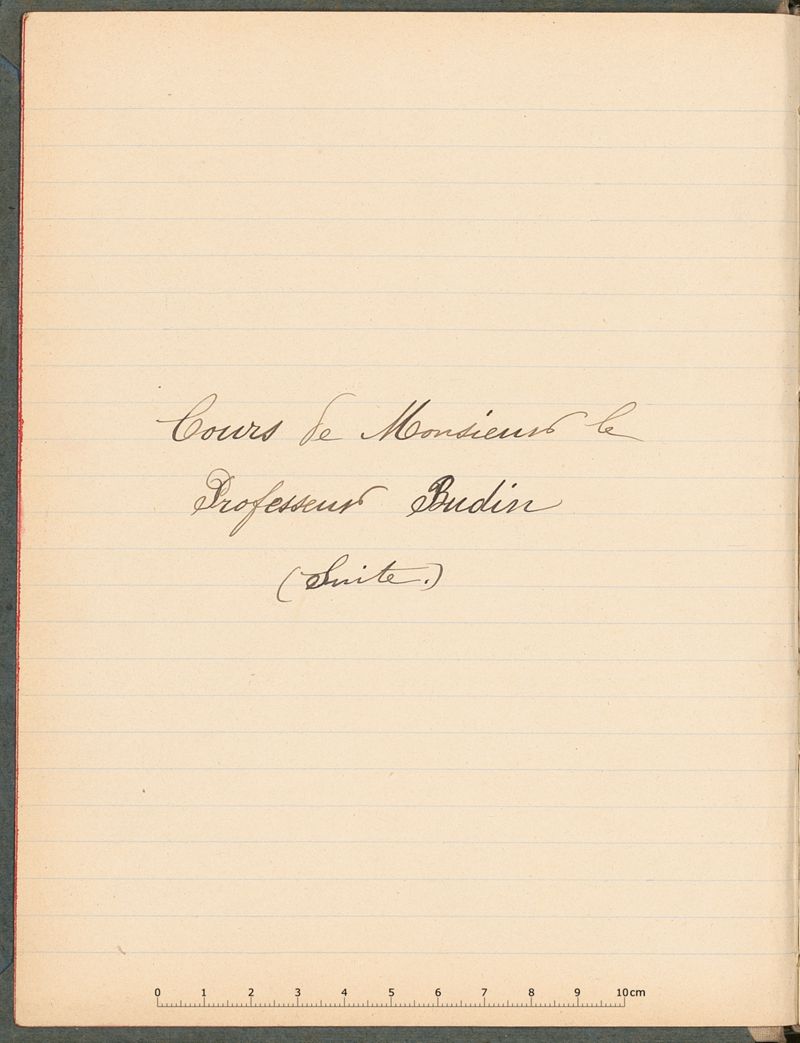 Cours de Monsieur le
Professeur Budin
(Suite.)
0 1 2 3 4 5 6 7 8 9 10 cm